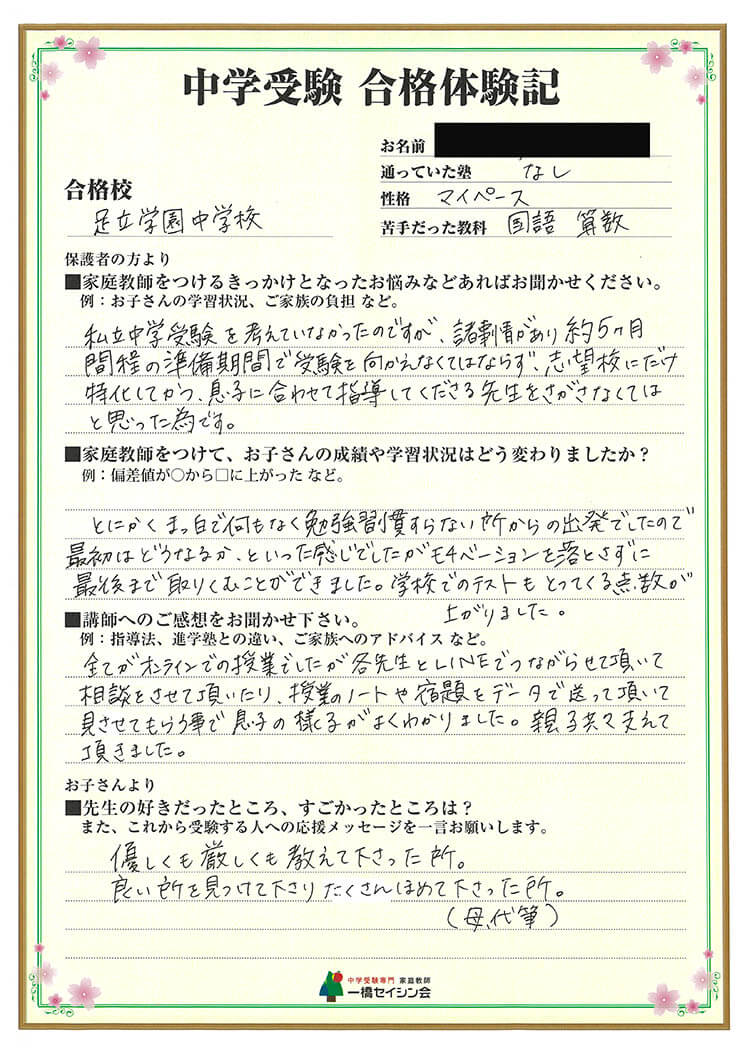 中学受験 合格体験記
お名前
通っていた塾 なし
性格 マイペース
苦手だった教科 国語 算数
合格校
足立学園中学校
保護者の方より
■家庭教師をつけるきっかけとなったお悩みなどあればお聞かせください。
例:お子さんの学習状況、ご家族の負担 など。
私立中学受験を考えていなかったのですが、諸事情があり約5ヶ月
間程の準備期間で受験を向かえなくてはならず、志望校にだけ
特化してかつ、息子に合わせて指導してくださる先生をさがさなくては
と思った為です。
■家庭教師をつけて、お子さんの成績や学習状況はどう変わりましたか?
例:偏差値が○から□に上がった など。
とにかくまっ白で何もなく勉強習慣すらない所からの出発でしたので
最初はどうなるか、といった感じでしたがモチベーションを落とさずに
最後まで取りくむことができました。学校でのテストもとってくる点数が
上がりました。
■講師へのご感想をお聞かせ下さい。
例:指導法、進学塾との違い、ご家族へのアドバイス など。
全てがオンラインでの授業でしたが各先生とLINEでつながらせて頂いて
相談をさせて頂いたり、授業のノートや宿題をデータで送って頂いて
見させてもらう事で息子の様子がよくわかりました。親子共々支えて
頂きました。
お子さんより
■先生の好きだったところ、すごかったところは?
また、これから受験する人への応援メッセージを一言お願いします。
優しくも厳しくも教えて下さった所。
良い所を見つけて下さりたくさんほめて下さった所。
(母、代筆)
中学受験専門 家庭教師
一橋セイシン会